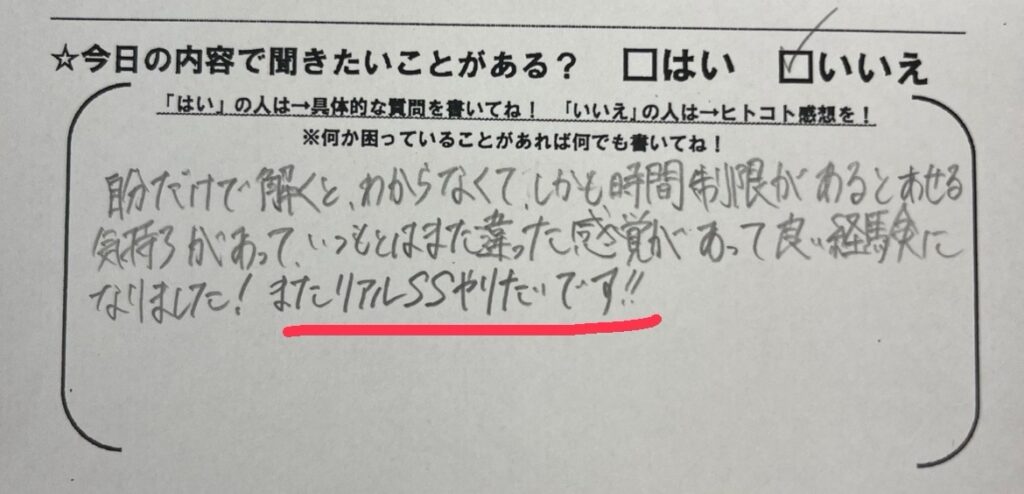 ☆今日の内容で聞きたいことがある？ □はい ☑いいえ
「はい」の人は→具体的な質問を書いてね！ 「いいえ」の人は→ヒトコト感想を！
※何か困っていることがあれば何でも書いてね！
自分だけで解くと、わからなくて、しかも時間制限があるとあせる
気持ちがあって、いつもとはまた違った感覚があって良い経験に
なりました！またリアルSSやりたいです!!